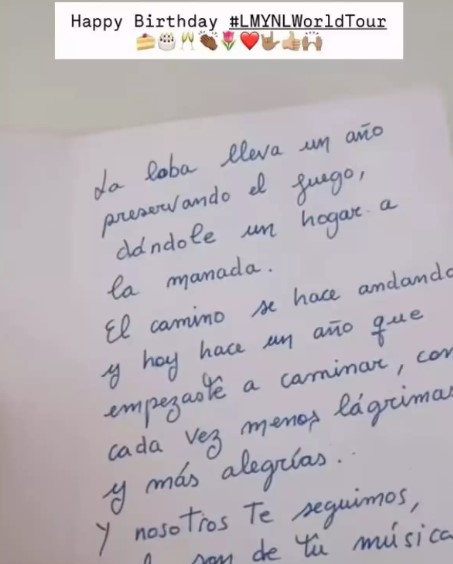 Happy Birthday #LMYNLWorldTour
🍰🎂🥂👏🏾🌷❤️🤟🏽👍🏼🙌🏽
La loba lleva un año
preservando el fuego,
dándole un hogar a
la manada.
El camino se hace andando
y hoy hace un año que
empezaste a caminar, con
cada vez menos lágrimas
y más alegrías..
Y nosotros te seguimos,
son de tu música